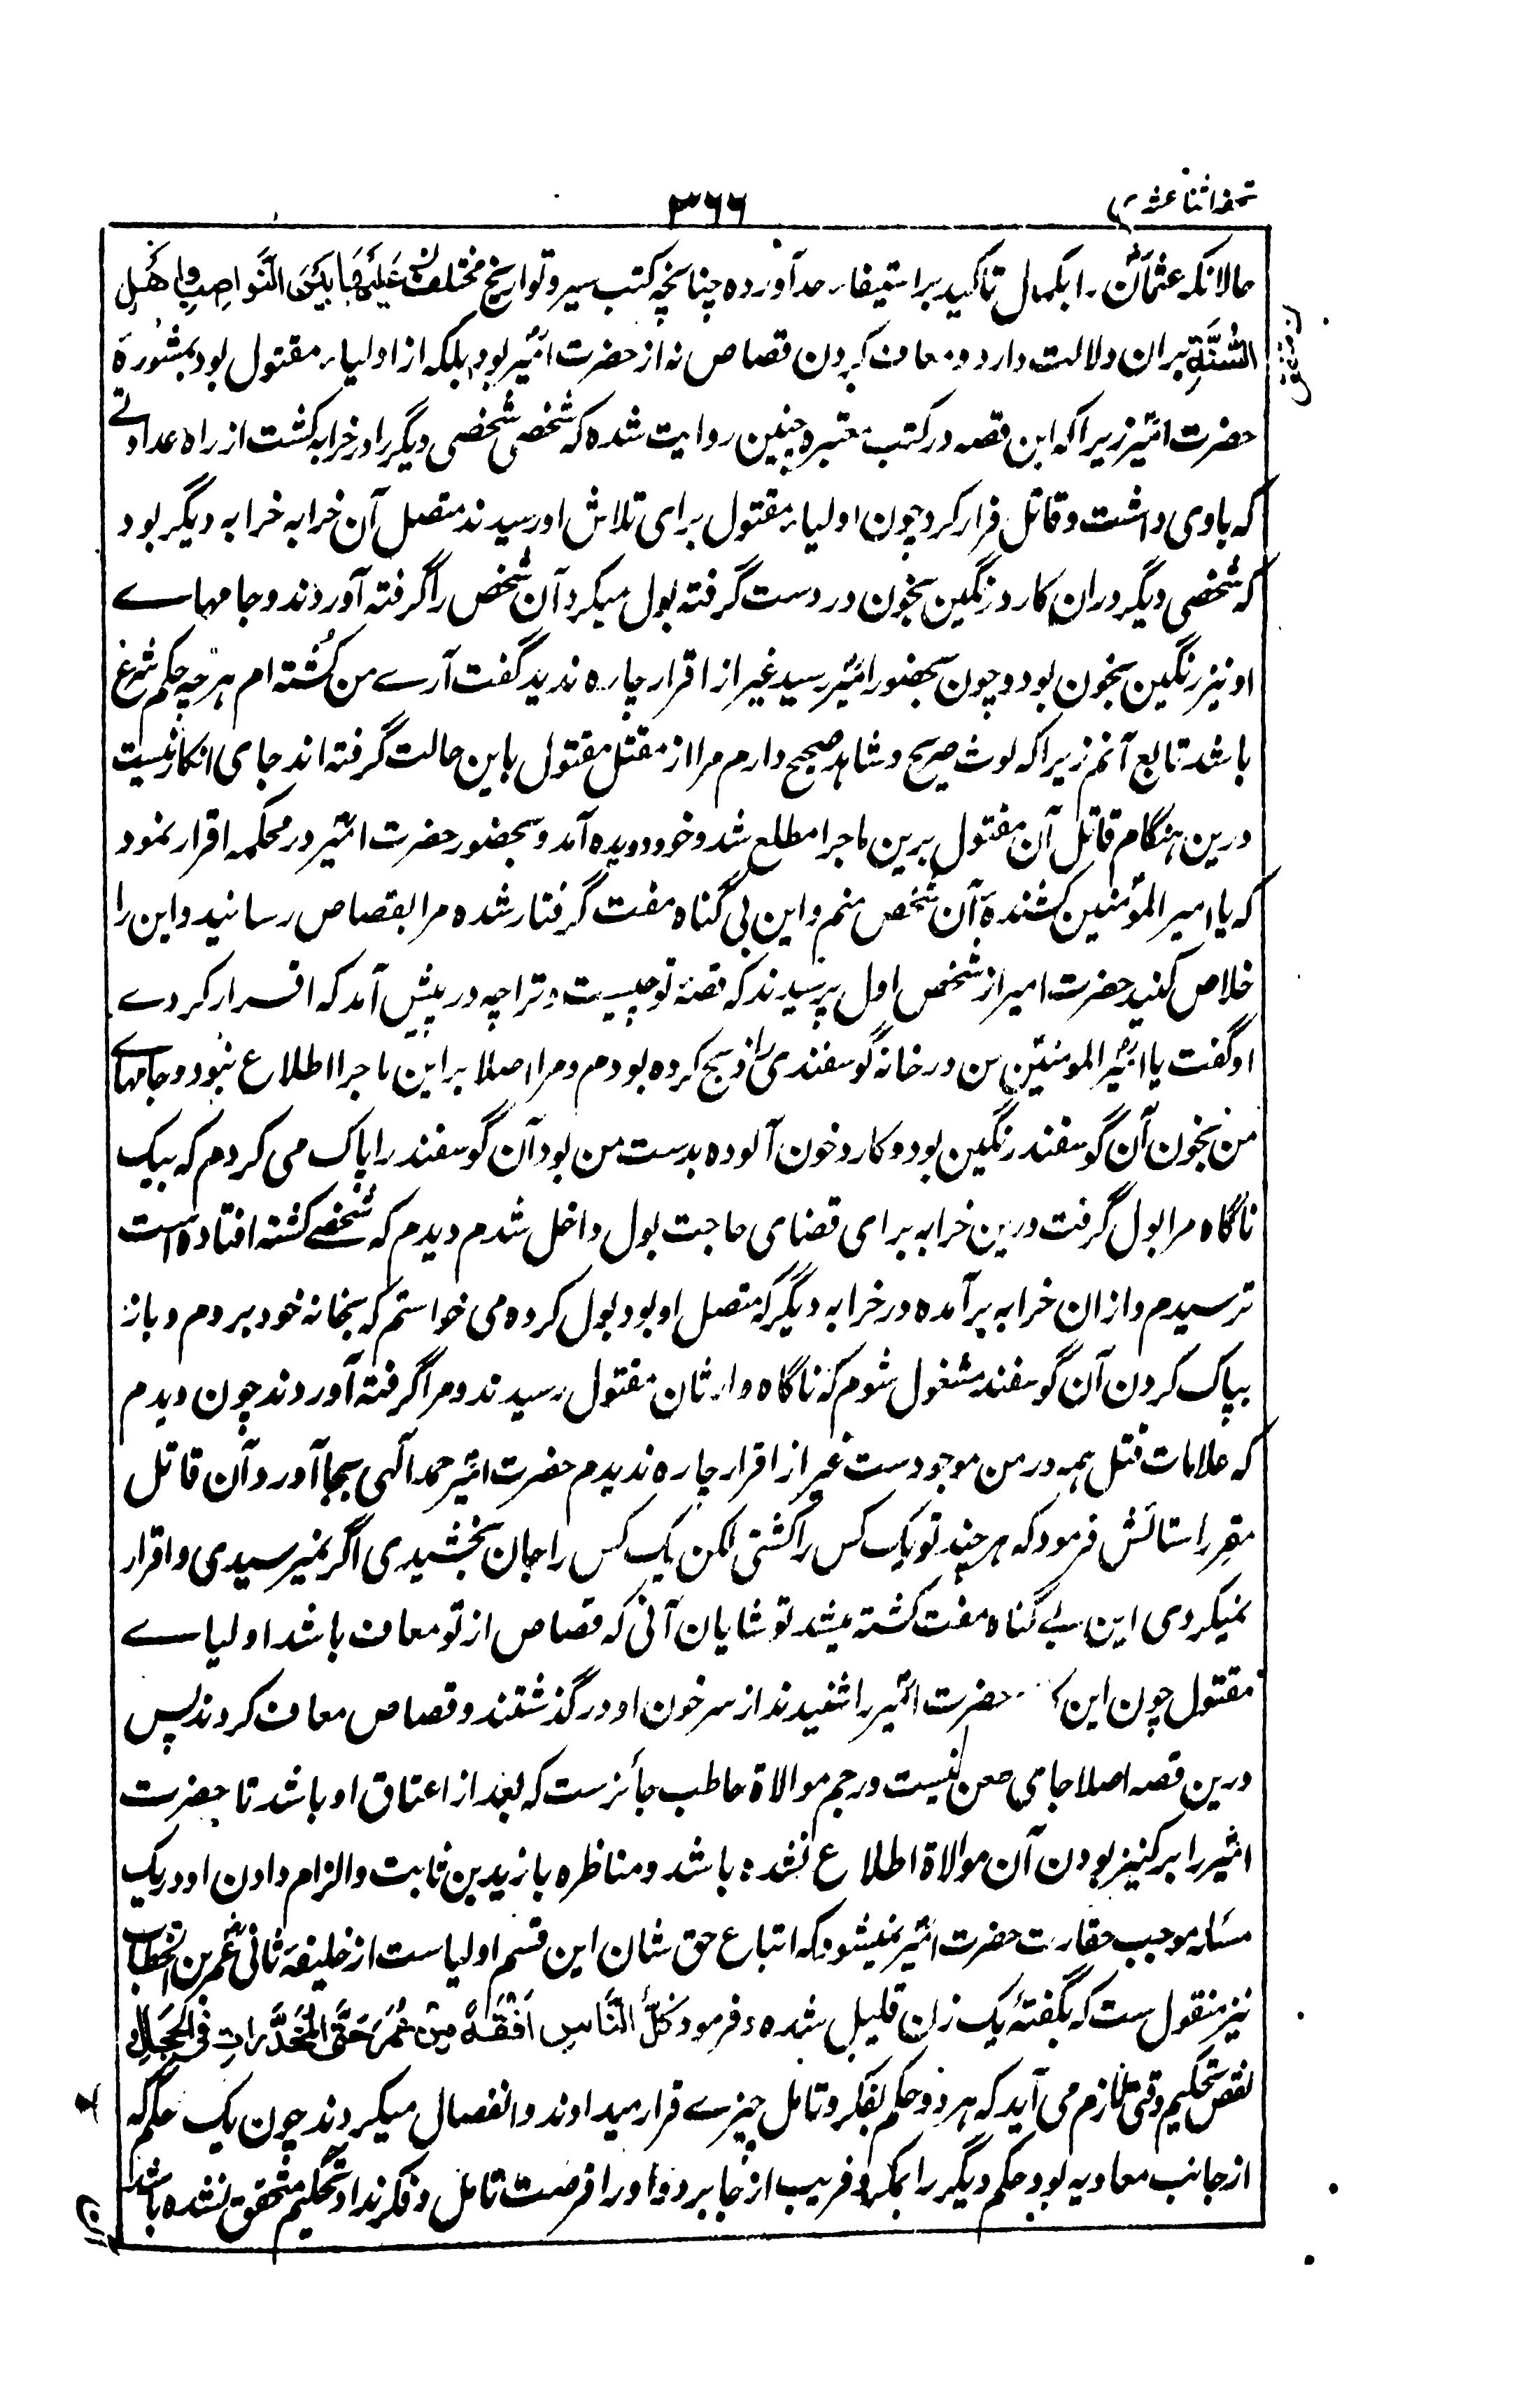 تحفه اثنا عشریه
۳۶۶
حالانکه عثمان را بکمال تاکید بر استیفاء حد آورده چنانچه کتب سیر و تواریخ مختلف علیها بین النواصب و اهل
السنة بران دلالت دارد و معاف کردن قصاص نه از حضرت امیر بود بلکه از اولیاء مقتول بود بمشوره
حضرت امیر زیرا که این قصه در کتب معتبره چنین روایت شده که شخصی شخصی دیگر را در خرابه کشت از راه عداوتے
که باوی داشت و قاتل فرار کرد چون اولیاء مقتول برای تلاش او رسیدند متصل آن خرابه خرابه دیگر بود
که شخصی دیگر دران کارد رنگین بخون در دست گرفته بول میکرد آن شخص را گرفته آوردند و جامهاے
او نیز رنگین بخون بود و چون بحضور امیر رسید غیر از اقرار چاره ندید گفت آرے من کشته ام هر چه حکم شرع
باشد تابع آنم زیرا که لوث صریح و شاهد صحیح دارم مرا از مقتل مقتول باین حالت گرفته اند جای انکار نیست
درین هنگام قاتل آن مقتول برین ماجرا مطلع شد و خود دویده آمد و بحضور حضرت امیر در محکمه اقرار نمود
که یا امیر المؤمنین کشندهٔ آن شخص منم و این بی گناه مفت گرفتار شده مرا بقصاص رسانید و این را
خلاص کنید حضرت امیر از شخص اول پرسیدند که قصهٔ تو چیست و ترا چه در پیش آمد که اقرار کردے
او گفت یا امیر المومنین من در خانه گوسفندی را ذبح کرده بودم و مرا اصلا بر این ماجرا اطلاع نبود و جامهاے
من بخون آن گوسفند رنگین بود و کارد خون آلوده بدست من بود آن گوسفند را پاک می کردم که بیک
ناگاه مرا بول گرفت درین خرابه برای قضای حاجت بول داخل شدم دیدم که شخصے کشته افتاده است
ترسیدم و ازان خرابه برآمده در خرابه دیگر که متصل او بود بول کرده می خواستم که بخانه خود بروم و باز
بپاک کردن آن گوسفند مشغول شوم که ناگاه وارثان مقتول رسیدند و مرا گرفته آوردند چون دیدم
که علامات قتل همه در من موجودست غیر از اقرار چاره ندیدم حضرت امیر حمد الٰهی بجا آورد و آن قاتل
مقر را ستائش فرمود که هر چند تو یک کس را کشتی لکن یک کس را جان بخشیدی اگر نمیرسیدی و اقرار
نمیکردی این بے گناه مفت کشته میشد تو شایان آنی که قصاص از تو معاف باشد اولیاے
مقتول چون این حضرت امیر را شنیدند از سر خون او درگذشتند و قصاص معاف کردند پس
درین قصه اصلا جای طعن نیست و رجم موالاة حاطب جائزست که بعد از اعتاق او باشد تا حضرت
امیر را بر کنیز بودن آن موالاة اطلاع نشده باشد و مناظره با زید بن ثابت و الزام دادن او در یک
مسئله موجب حقارت حضرت امیر نمیشود که اتباع حق شان این قسم اولیاست از خلیفهٔ ثانی عمر بن الخطاب
نیز منقول ست که بگفتهٔ یک زن قایل شده و فرمود کل الناس افقه من عمر حتی المخدرات فی الحجال و
نقض تحکیم وقتی لازم می آید که هر دو حکم بفکر و تامل چیزے قرار میدادند و انفصال میکردند چون یک حکم که
از جانب معاویه بود حکم دیگر را بمکر و فریب از جا برد و او را فرصت تامل و فکر نداد تحکیم متحقق نشده باشد